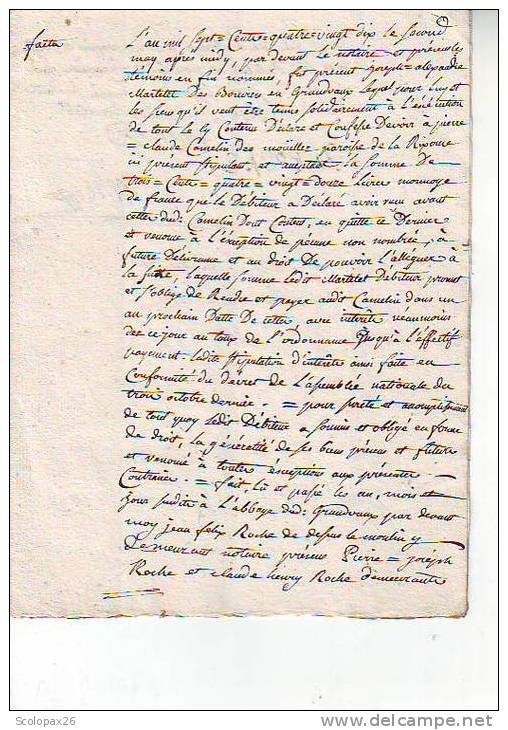 faéta
L'an mil Sept = Cents = quatre = vingt dix le Second
may après midy, par devant le notaire et présents les
témoins en fin nommés, fut présent Joseph = alexandre
Martelet Des Bouvres en Grandvaux lequel pour luy et
les siens qu'il veut être tenus solidairement à l'éxécution
de tout le cy Contenu Déclare et Confesse Devoir à pierre
= claude Camelin des moüilles paroisse de la Rixouse
ici présent stipulant et aceptant la somme De
trois = Cents = quatre = vingt = douze livres monnoye
de france que le Débiteur a Déclaré avoir reçu avant
cettes dud: Camelin Dont Content, en quitte ce Dernier
et renonce à l'éxception de pecune non nombrée, à
future Délivrance et au droit De pouvoir l'alléguer à
la suitte, laquelle somme ledit Martelet Débiteur promet
et s'oblige de Rendre et payer audit Camelin dans un
an prochain Datte De cettes, avec intérêts neanmoins
dez ce jour au taux de l'ordonnance jusqu'à l'éffectif
payement: ladite stipulation d'intérêts ainsi faite en
Conformité du décret de L'assemblée nationale du
trois octobre dernier. = pour sureté et accomplissement
de tout quoy ledit Débiteur a soumis et obligé en forme
de droit, la généralité de ses biens présens et futurs
et renoncé à toutes éxceptions aux présentes
Contraires. = fait, lû et passé les an, mois et
jour susdits à L'abbaye dud: Grandvaux par devant
moy jean felix Roche de dessus le moulin y
Demeurant notaire présens Pierre = joseph
Roche et claude henry Roche demeurants
Scolopax26
www.delcampe.net